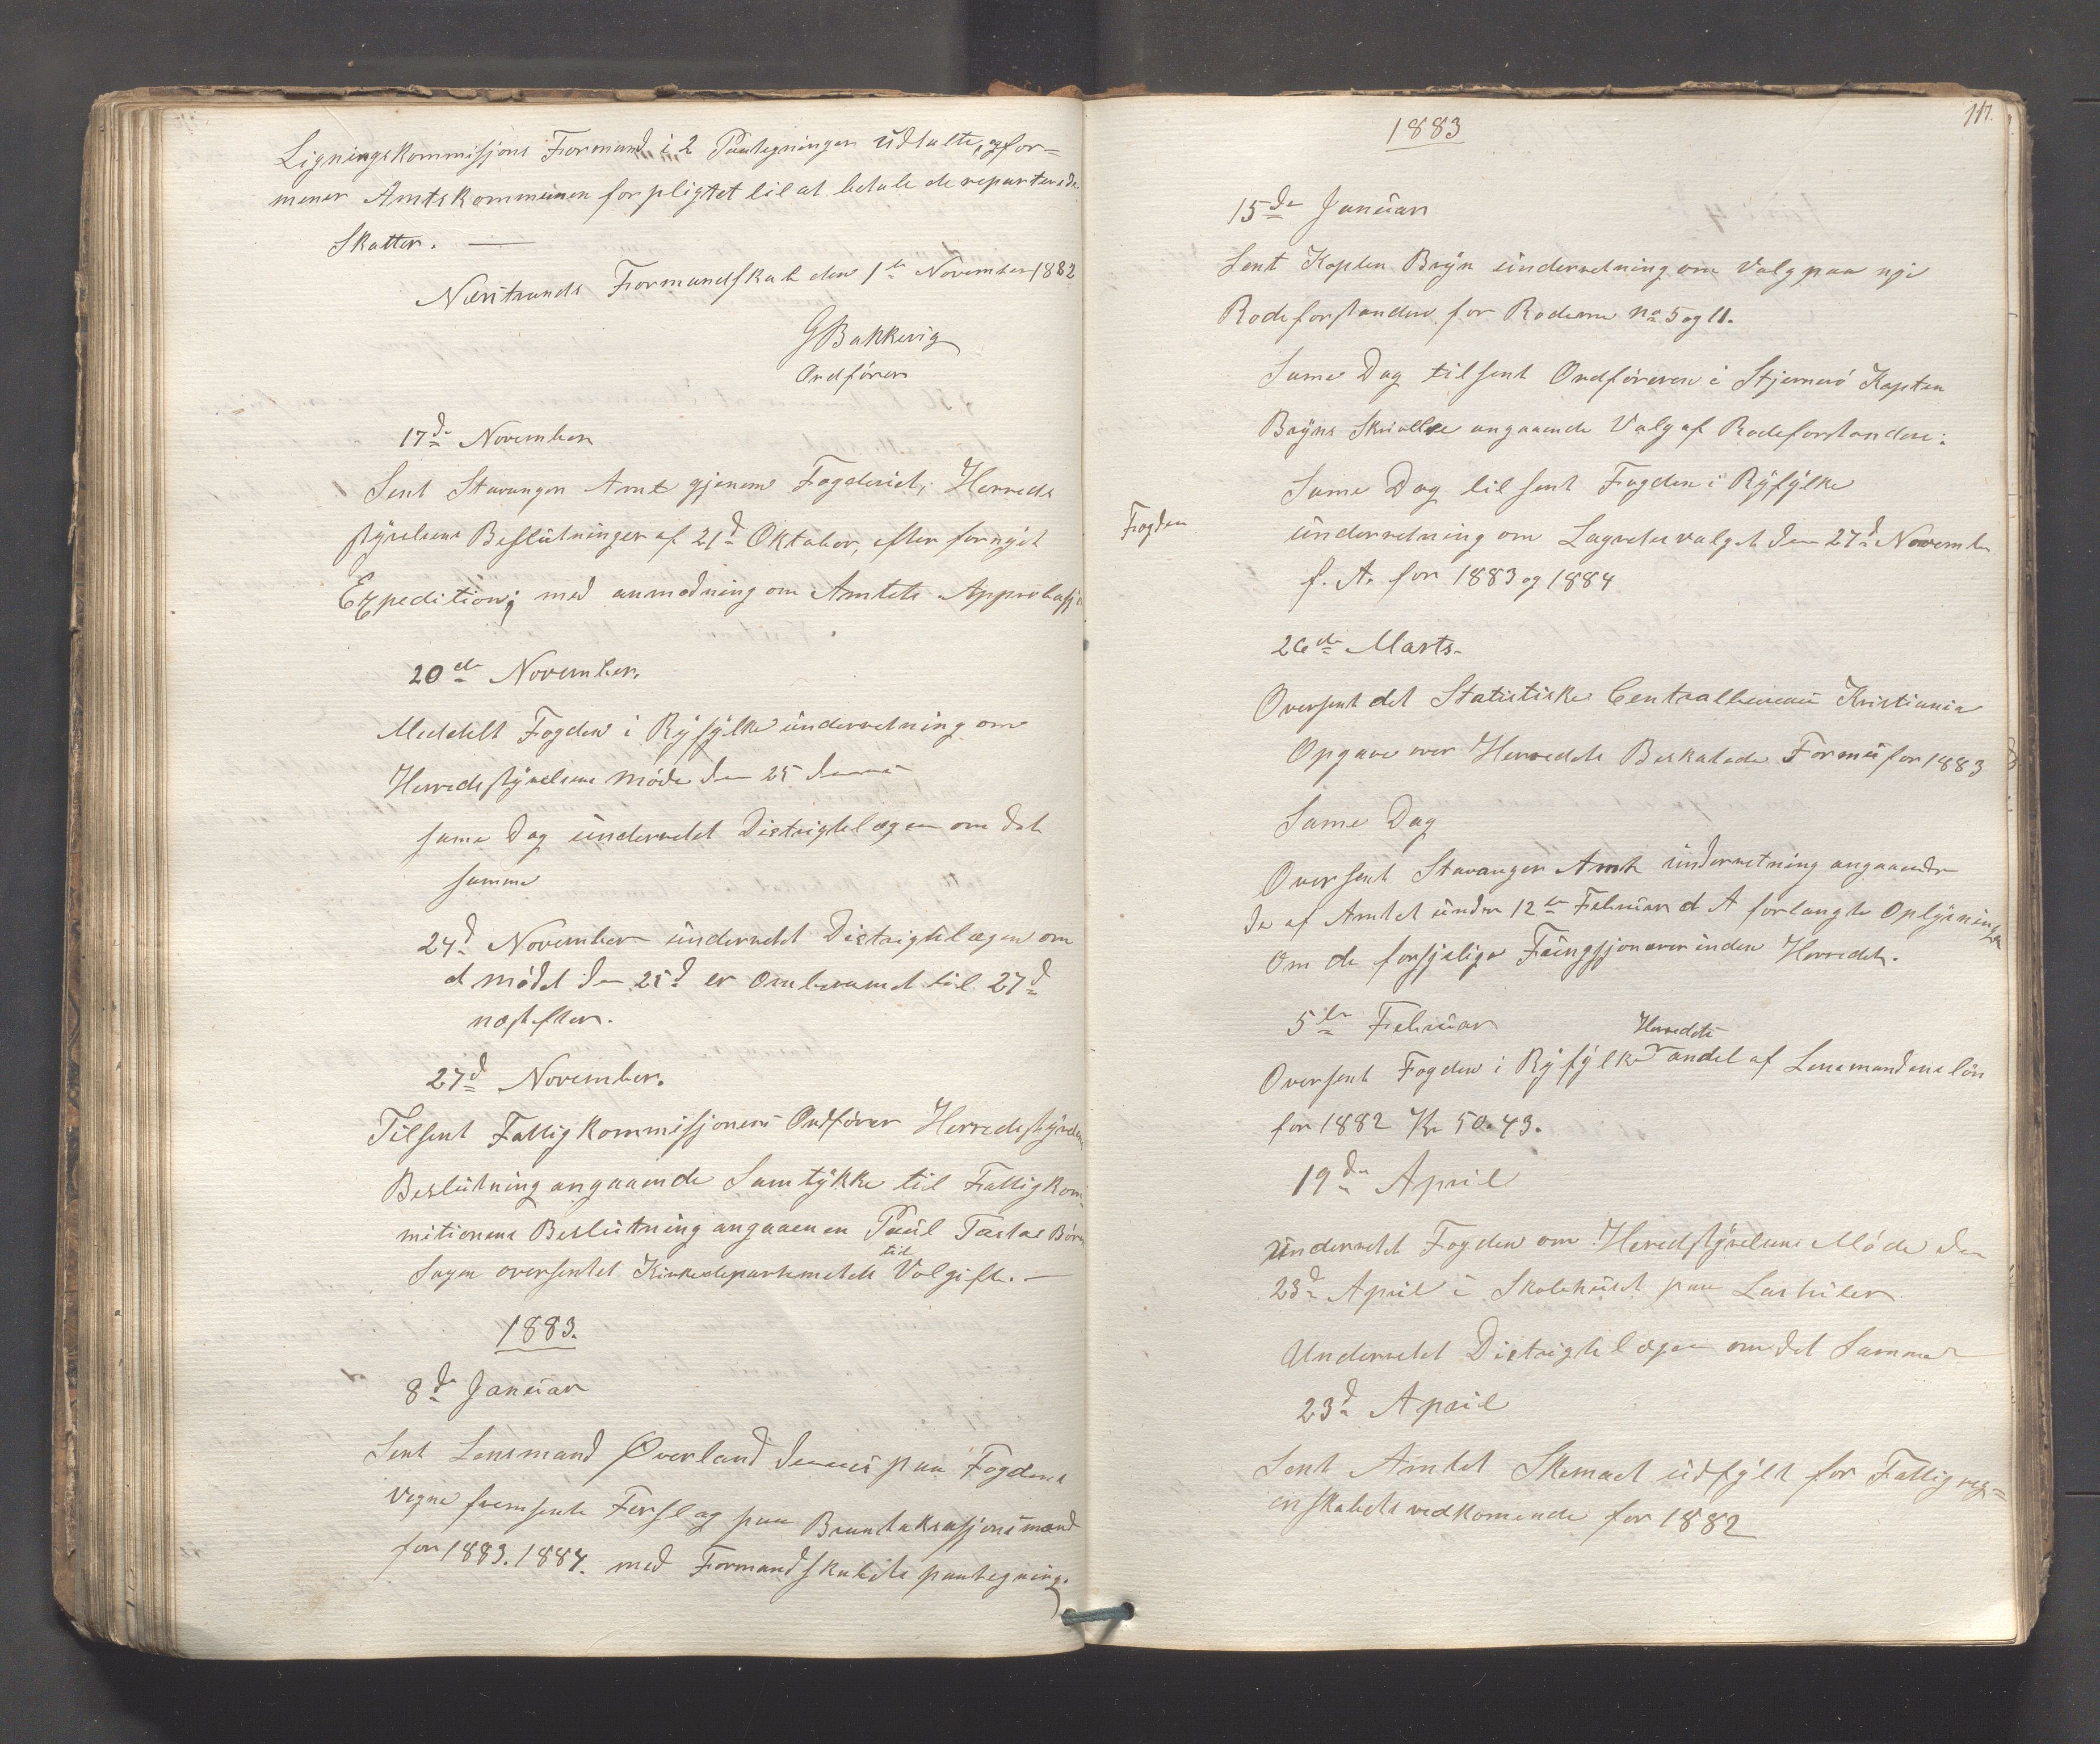 Ligningskommisjons Formand i 2 Paategninger udtalte, og for=
mener Amtskommunen forpligtet til at betale de reparterede
Skatter. —
Nerstrands Formandskab den 1te November 1882
G Bakkevig
Ordförer
17de November
Sent Stavanger Amt gjenem Fogderiet, Herreds
styrelsens Beslutninger af 21d Oktober, efter fornyet
Expedition; med anmodning om Amtets Approbasj
20de November.
Meddelt Fogden i Ryfylke underretning om
Herredsstyrelsens möde den 25 dennes
same Dag underrettet Distrigtslægen om det
samme
24d November underrettet Distrigtslægen om
at mödet den 25d er Omberamet til 27d
næstefter.
27d November.
Tilsent Fattigkommissjonens Ordförer Herredsstyrelsens
Beslutning angaaende Samtykke til Fattigkom
mitionens Beslutning angaaenen Paul Tastas Börn
Sagen oversentet Kirkedepartemetet til Volgift. —
1883.
8de Januar
Sent Lensmand Øverland dennes paa Fogdens
Vegne fremsente Forslag paa Branntaksasjonsmænd
for 1883. 1884. med Formandskabets paategning.
117.
1883
15de Januar
Sent Kapten Bryn underretning om Valg paa nye
Rodeforstandere for Roderne No 5 og 11.
Same Dag tilsent Ordföreren i Stjernerö Kapten
Bryns Skrivelse angaaende Valg af Rodeforstandere.
Same Dag tilsent Fogden i Ryfylke
Fogden
underretning om Lagrettesvalget den 27d Novembe
f. A. for 1883 og 1884
26de Marts.
Oversent det Statistiske Centralbureau Kristiania
Opgave over Herredets Beskatede Formue for 1883
Same Dag
Oversent Stavanger Amt underretning angaaende
de af Amtet under 12te Februar d A forlangte Oplysninger
Om de forsjelige Fungsjonærer inden Herredet.
5te Februar
Oversent Fogden i Ryfylke Herredets andel af Lensmandens lön
for 1882 Kr 50.43.
19de April
Underrettet Fogden om Heredstyrelsens Möde den
23d April i Skolehuset paa
Underrettet Distrigtslægen om det Samme
23d April
Sent Amtet Skemaet udfylt for Fattigreg=
enskabets vedkomende for 1882